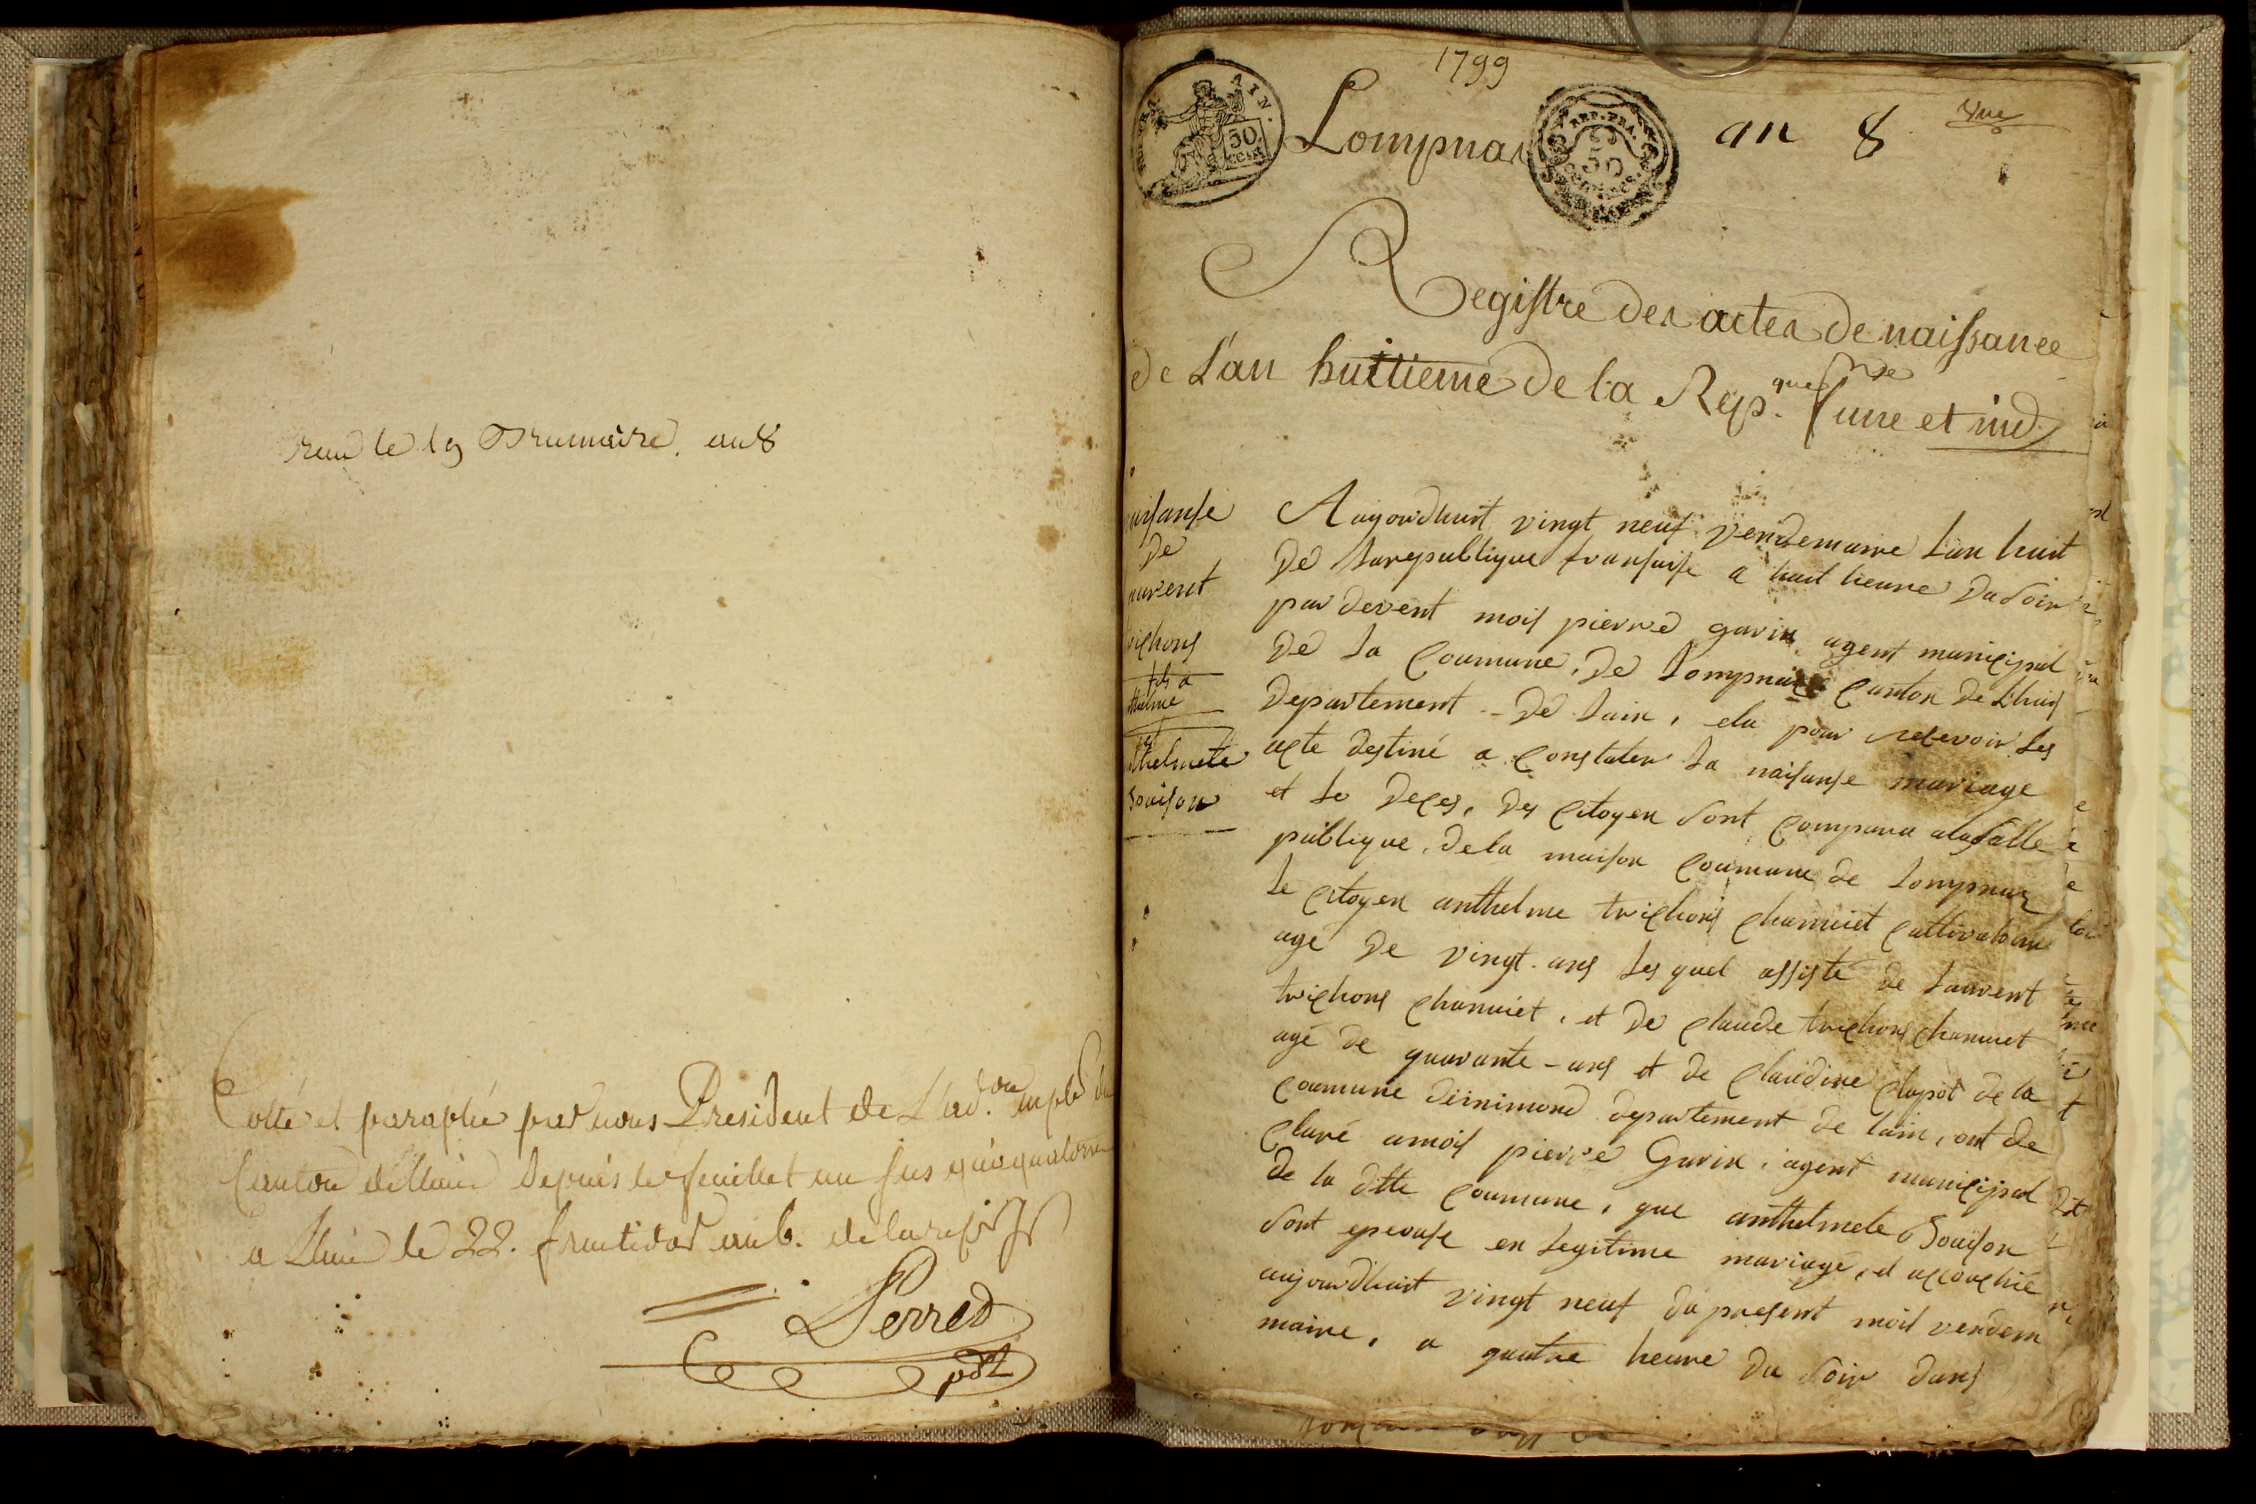 rendu le 19 Brumaire. an 8
Cotté et paraphé par nous Président de L'ad.on mple du
Canton de Lhuis depuis le feuillet un jus qu'a quatorze
a Lhuis le 22. fructidor an 6. de la rep.
Perret
pdt
1799
AIN.
50
cent
Lompnas
REP. FRA.
50
an 8
Registre des actes de naissance
de L'an huitieme de la Rep.que fnse une et ind
naisanse
De
Laurent
trichons
fils a
Anthelme
et
Anthelmete
Souison
Aujourdhuit vingt neuf vendemaire Lan huit
De Larepublique fransaise a huit heure Du soir
par devent mois pierre garin agent municipal
De La Coumune, De Lompnas Canton De Lhuis
Departement - De Lain, elu pour recevoir Les
acte destiné a Constater La naisanse mariage
et Le Deces, Des Citoyen sont Comparu alasalle
publique, De la maison Coumune de Lompnas
Le Citoyen anthelme trichons chamuet Cultivateur
age De vingt. ans Les quel assisté de Laurent
trichons chamuet, et De Claude trichons chamuet
agé de quarante - ans et de Claudine Clapot de la
Coumune Deinimond departement de Lain, ont de
Claré amois pierre Garin, agent municipal
De la ditte Coumune, que anthelmete Souison
sont epeouse en Legitime mariage, et acouchié
aujourdhuit vingt neuf du present mois vendem
maire, a quatre heure Du soir Dans